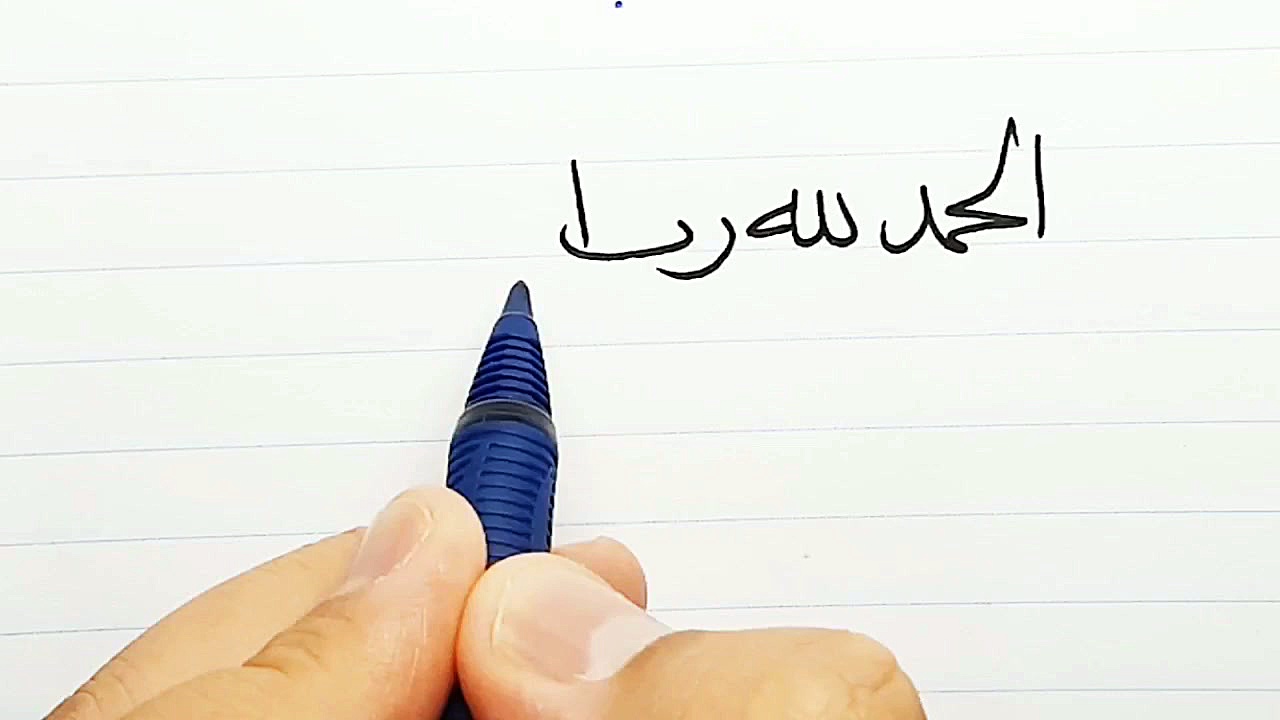 الحمد لله رب ا